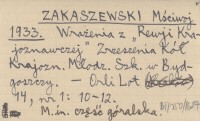 ZAKASZEWSKI Maciej
1933. Wrażenia z „Rewji Kra-
joznawczej" Zrzeszenia Kół
Krajozn. Młodz. Szk. w Byd-
goszczy. – Orli Lot
14, nr 1: 10-12.
M. in. część góralska.